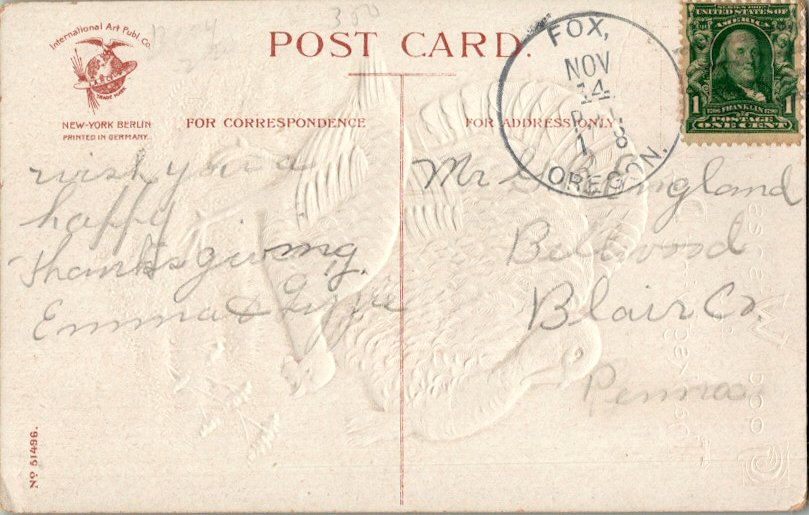 300
International Art Publ. Co.
TRADE MARK
NEW-YORK BERLIN
PRINTED IN GERMANY.
POST CARD.
FOR CORRESPONDENCE
FOR ADDRESS ONLY.
FOX,
NOV
14
OREGON.
SERIES 1902
UNITED STATES OF
AMERICA
1 FRANKLIN 1
POSTAGE
ONE CENT
wish you a
happy
Thanksgiving.
Emma &
Mr England
Bellwood
Blair Co.
Penna
No 51496.